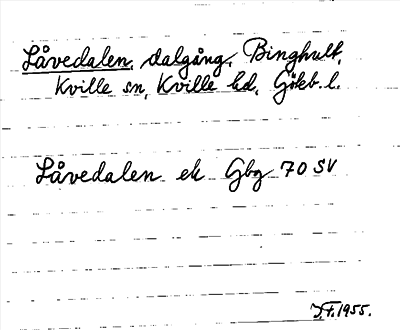 Låvedalen, dalgång, Binghult,
Kville sn, Kville hd, Göteb. l.
Låvedalen ek Gbg 70 SV
1955.